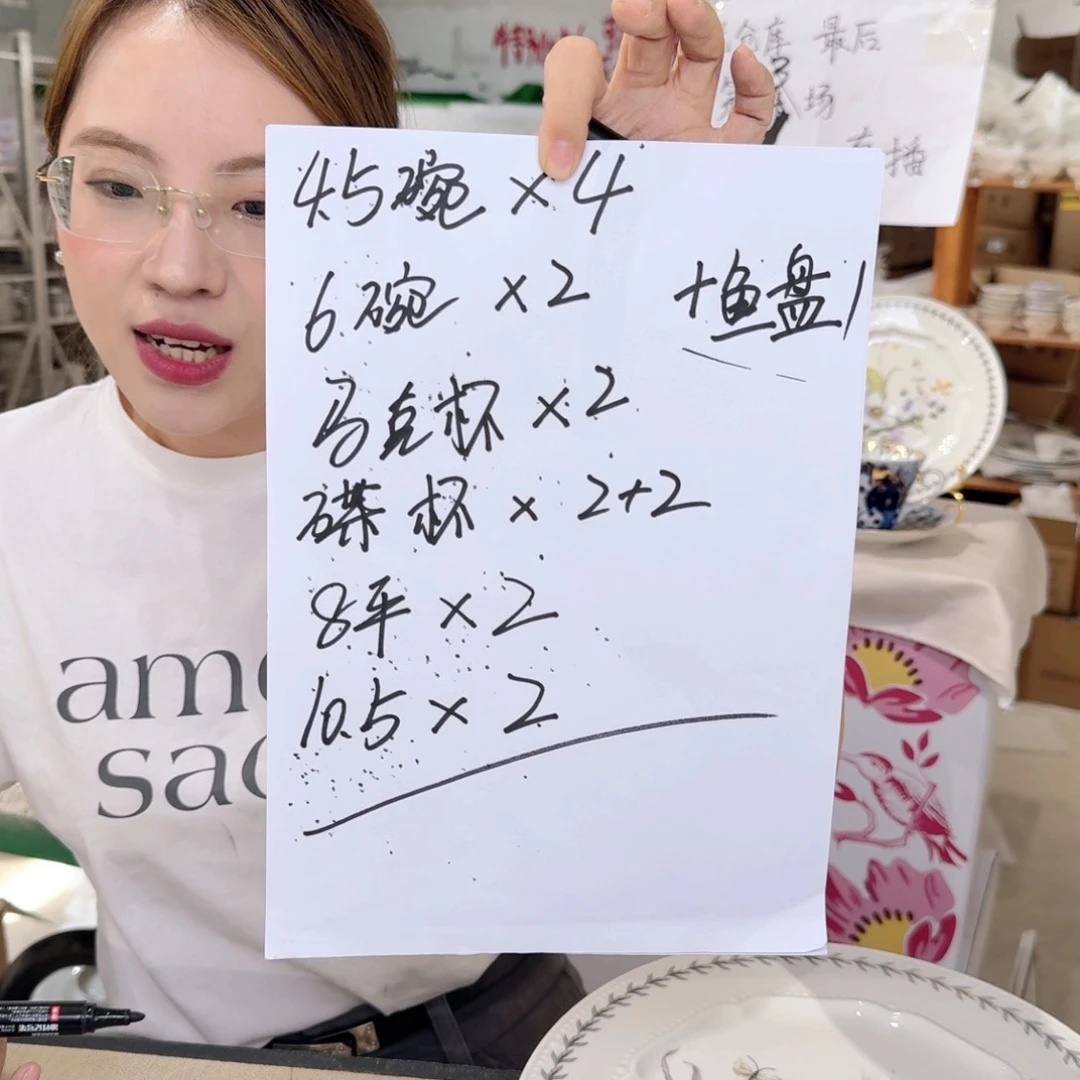 4.5碗 ×4
6.碗 ×2 +鱼盘1
马克杯 ×2
碟杯 × 2+2
8平 ×2
10.5 × 2
仓库 最后
场
播
am
sa